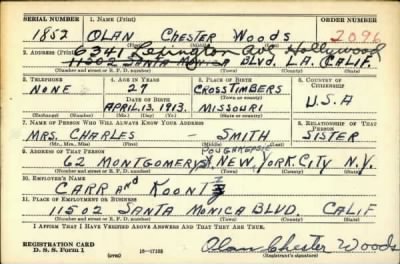 SERIAL NUMBER 1. NAME (Print) ORDER NUMBER
1852 OLAN CHESTER WOODS 2096
6341 Lexington Ave Hollywood
2. ADDRESS (Print) 11502 SANTA MONICA BLVD. L.A. CALIF.
(Number and street or R. F. D. number) (Town) (County) (State)
3. TELEPHONE 4. AGE IN YEARS 5. PLACE OF BIRTH 6. COUNTRY OF CITIZENSHIP
NONE 27 CROSS TIMBERS
DATE OF BIRTH (Town or county) U.S.A
APRIL. 13. 1913. MISSOURI
(Exchange) (No.) (Mo.) (Day) (Yr.) (State or country)
7. NAME OF PERSON WHO WILL ALWAYS KNOW YOUR ADDRESS 8. RELATIONSHIP OF THAT PERSON
MRS. CHARLES - SMITH SISTER
(Mr., Mrs., Miss) (First) (Middle) (Last)
9. ADDRESS OF THAT PERSON POUGHKEPSIE
62 MONTGOMERY ST. NEW YORK CITY N.Y.
(Number and street or R. F. D. number) (Town) (County) (State)
10. EMPLOYER'S NAME
CARR AND KOONTZ
11. PLACE OF EMPLOYMENT OR BUSINESS
11502 SANTA MONICA BLVD. CALIF
(Number and street or R. F. D. number) (Town) (County) (State)
I AFFIRM THAT I HAVE VERIFIED ABOVE ANSWERS AND THAT THEY ARE TRUE.
REGISTRATION CARD
D. S. S. Form 1 (over) 16-17105 Olan Chester Woods
(Registrant's signature)